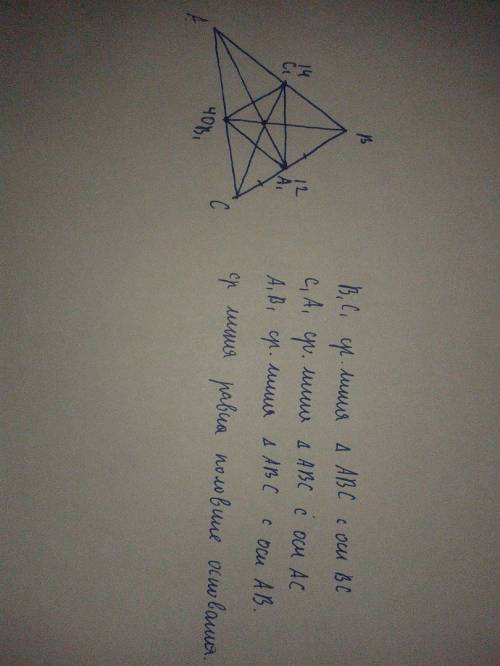 A
14
C₁
B
40
B₁
12
A₁
C
B₁C₁ ср. линия Δ ABC с осн BC
C₁A₁ ср. линия Δ ABC с осн AC
A₁B₁ ср. линия Δ ABC с осн AB.
ср линия равна половине основания.